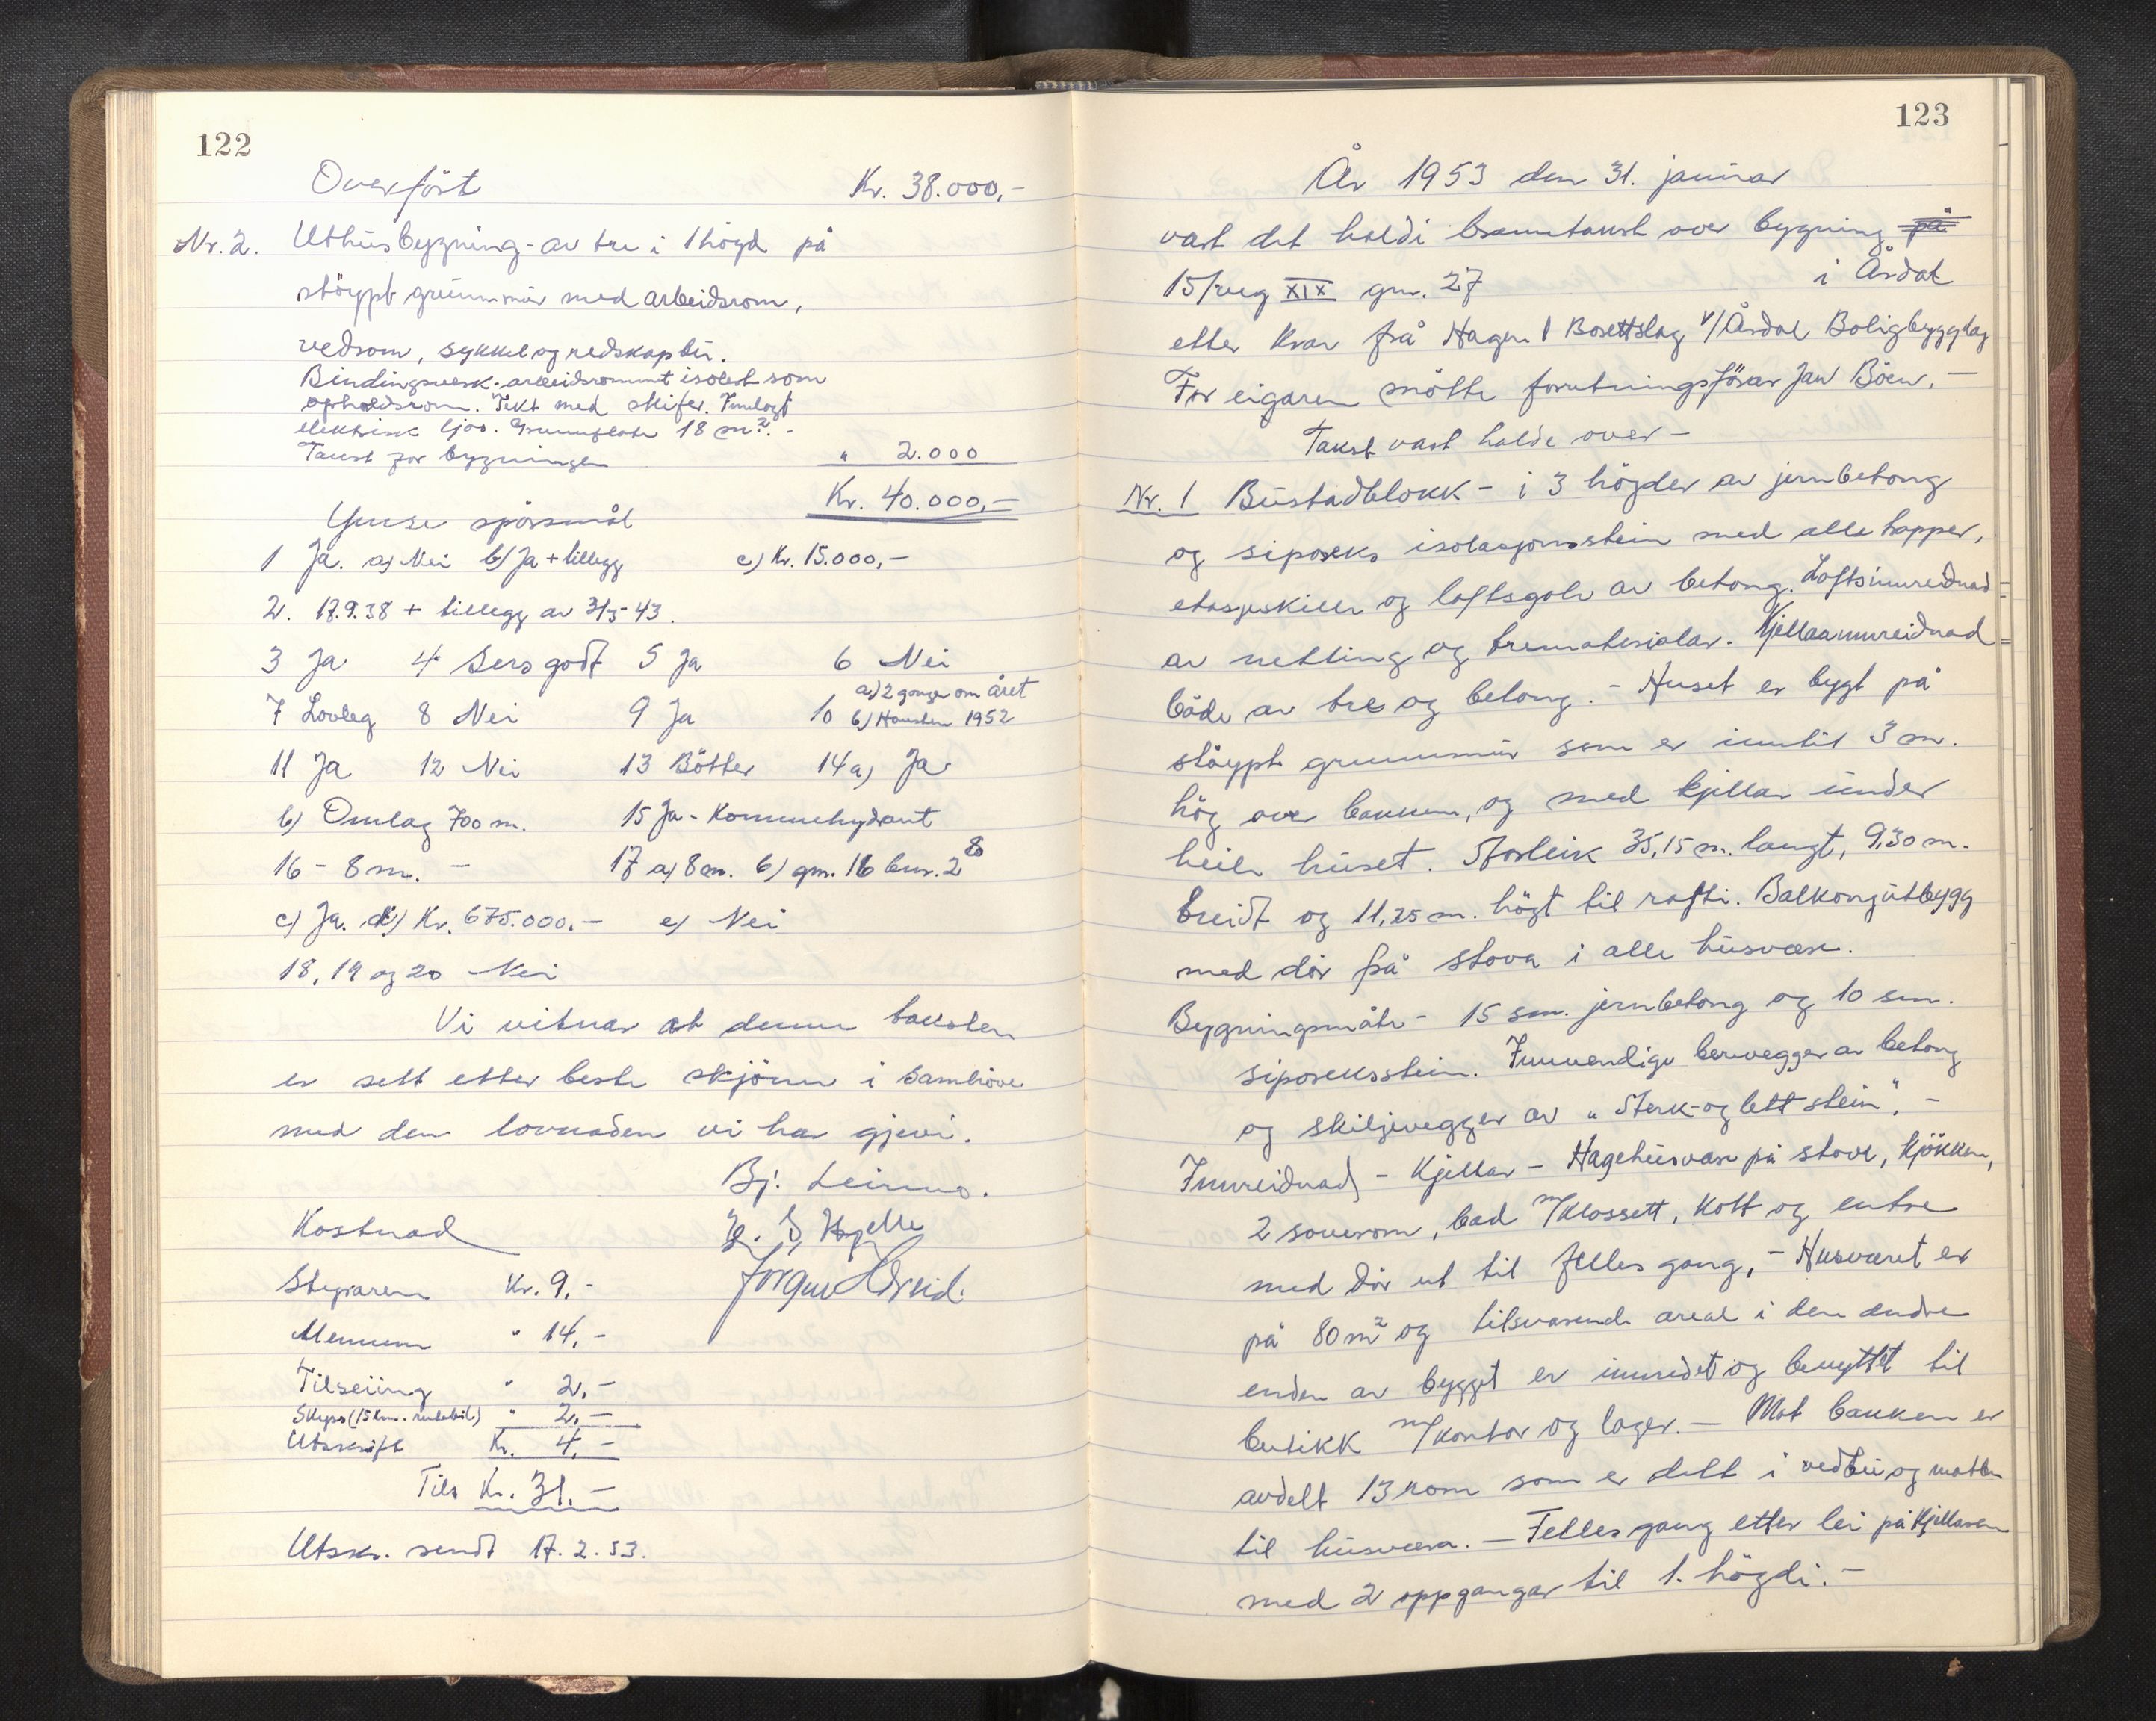 122
Overfört Kr. 38.000,-
Nr. 2. Uthusbygning - av tre i 1 högd på
stöypt grunnmur med arbeidsrom,
vedrom, sykkel og redskapbu.
Bindingsverk - arbeidsrommet isolert som
opholdsrom. Tekt med skifer. Innlagt
elektrisk ljos. Grunnflate 18 m². -
Takst for bygningen " 2.000
Kr. 40.000,-
Ymse spörsmål
1 Ja. a) Nei b) Ja + tillegg c) Kr. 15.000,-
2. 17.9.38 + tillegg av 3/5-43.
3 Ja 4 Sers godt 5 Ja 6 Nei
7 Lovleg 8 Nei 9 Ja 10 a) 2 gonger om året
b) Hausten 1952
11 Ja 12 Nei 13 Bötter 14 a) Ja
b) Omlag 700 m. 15 Ja - Kommunehydrant
16 - 8 m. - 17 a) 8 m. b) gnr. 16 bnr. 2 80
c) Ja. d) Kr. 675.000.- e) Nei
18, 19 og 20 Nei
Vi vitnar at denne taksten
er sett etter beste skjönn i samhöve
med den lovnaden vi har gjevi.
Bj. Leirmo.
Kostnad
Styraren Kr. 9,-
Mennene " 14,-
Tilseiing " 2,-
Skyss (15 km. rutebil) " 2,-
Utskrift Kr. 4,-
Tils Kr. 31.-
Utskr. sendt 17. 2. 53.
123
År 1953 den 31. januar
vart det haldi branntakst over bygning på
15/rug XIX gnr. 27 i Årdal
etter krav frå Hagen I Borettslag v/Årdal Boligbygglag
For eigaren mötte forretningsförar Jan Böen. -
Takst vart halde over -
Nr. 1 Bustadblokk - i 3 högder av jernbetong
og siporeks isolasjonsstein med alle trapper,
etasjeskille og loftsgolv av betong. Loftsinnreidnad =
av netting og trematerialar. Kjellarinnreidnad =
både av tre og betong. - Huset er bygt på
stöypt grunnmur som er inntil 3 m.
hög over bakken, og med kjellar under
heile huset. Storleik 35,15 m. langt, 9,30 m.
breidt og 11,25 m. högt til rafti. Balkongutbygg
med dör frå stova i alle husvære.
Bygningsmåte - 15 sm. jernbetong og 10 sm.
siporeksstein. Innvendige berevegger av betong
og skiljevegger av "Sterk- og lett stein". -
Innreidnad - Kjellar - Hagehusvære på stove, kjökken,
2 soverom, bad m/klossett, kott og entre
med dör ut til felles gang, - Husværet er
på 80 m² og tilsvarende areal i den andre
enden av bygget er innredet og benyttet til
butikk m/kontor og lager. - Mot bakken er
avdelt 13 rom som er delt i vedbu og matbu
til husværa. - Felles gang etter lei på kjellaren
med 2 oppgangar til 1. högdi. -